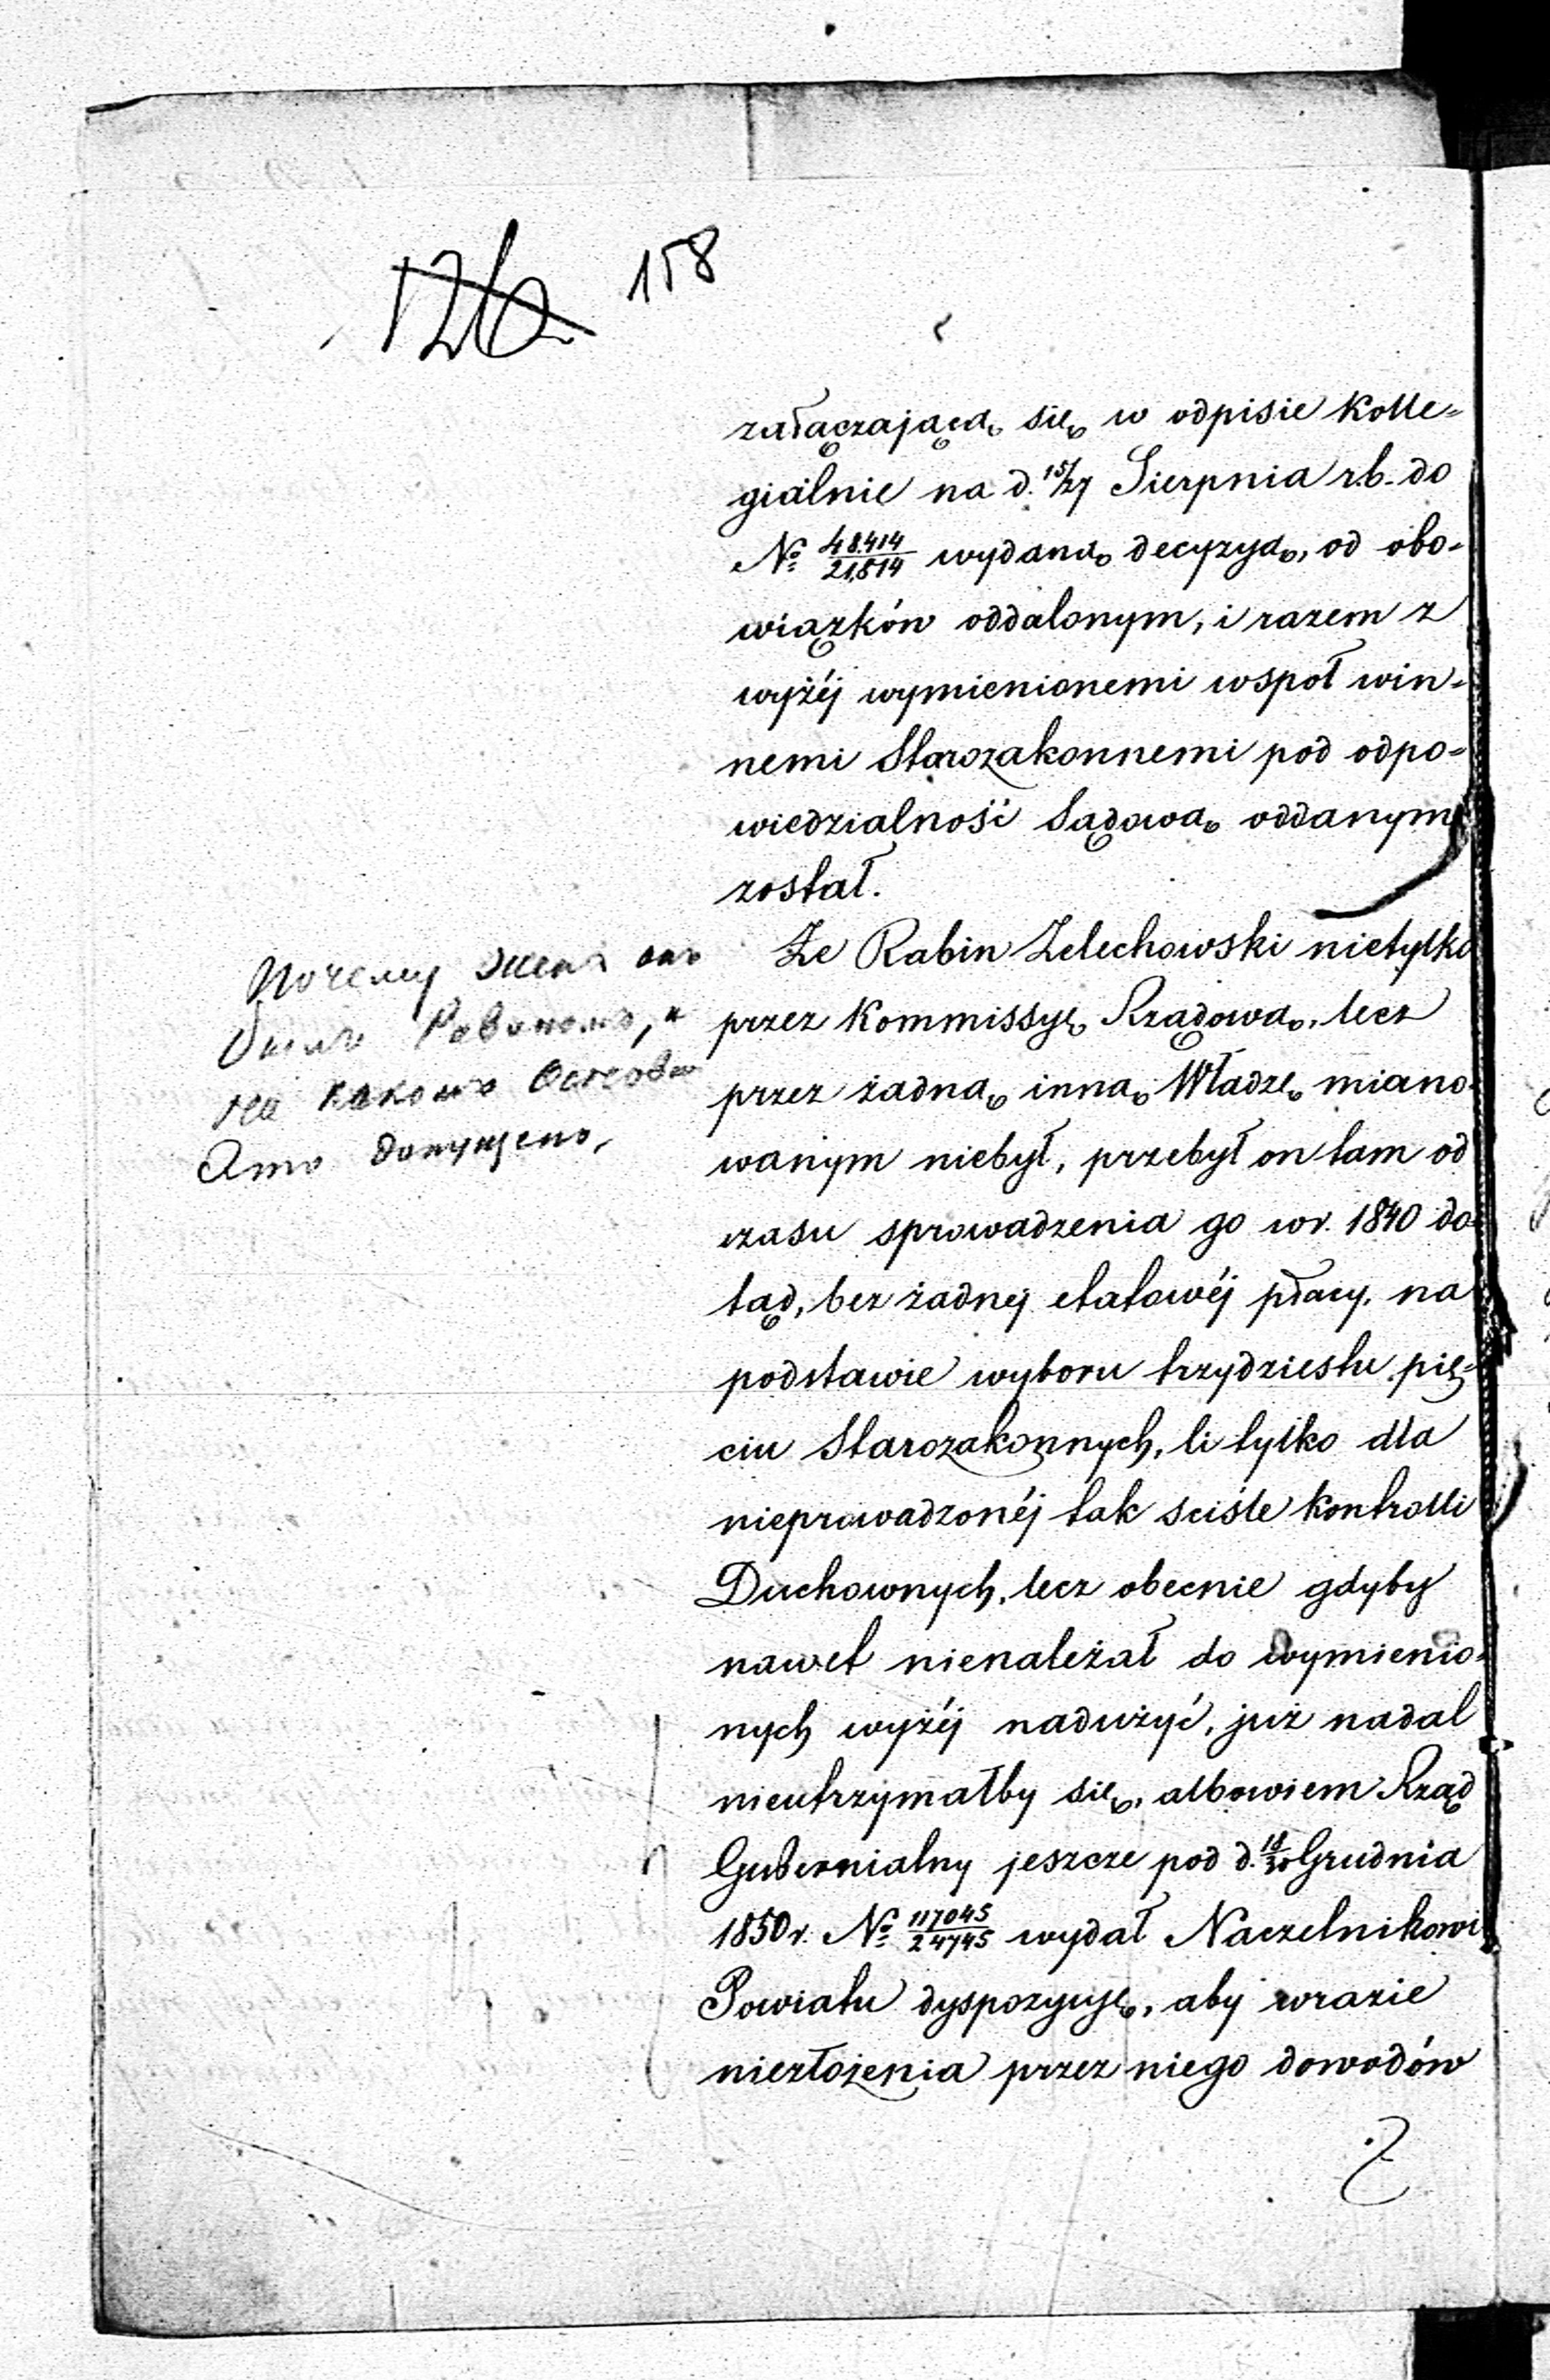 126 158
załączającą się w odpisie Kolle-
gialnie na d. 15/27 Sierpnia r.b. do
№ 48.414/21,814 wydaną decyzyą, od obo-
wiązków oddalonym, i razem z
wyżéj wymienionemi wspoł win-
nemi Starozakonnemi pod odpo-
wiedzialność Sądową oddanym
został.
Że Rabin Zelechowski nietylko
przez Kommissyę Rządową, lecz
przez żadną inną Władzę miano-
wanym niebył, przebył on tam od
czasu sprowadzenia go w r. 1840 do-
tąd, bez żadnej etatowéj płacy, na
podstawie wyboru trzydziestu pię-
ciu Starozakonnych, li tylko dla
nieprowadzonéj tak sciśle kontrolli
Duchownych, lecz obecnie gdyby
nawet nienależał do wymienio-
nych wyżéj nadużyć, już nadal
nieutrzymałby się, albowiem Rząd
Gubernialny jeszcze pod d. 18/30 Grudnia
1850 r. № 117045/24745 wydał Naczelnikowi
Powiatu dyspozycyę, aby wrazie
niezłożenia przez niego dowodów
Почему
Равиномъ, и
на какомъ
допущено,